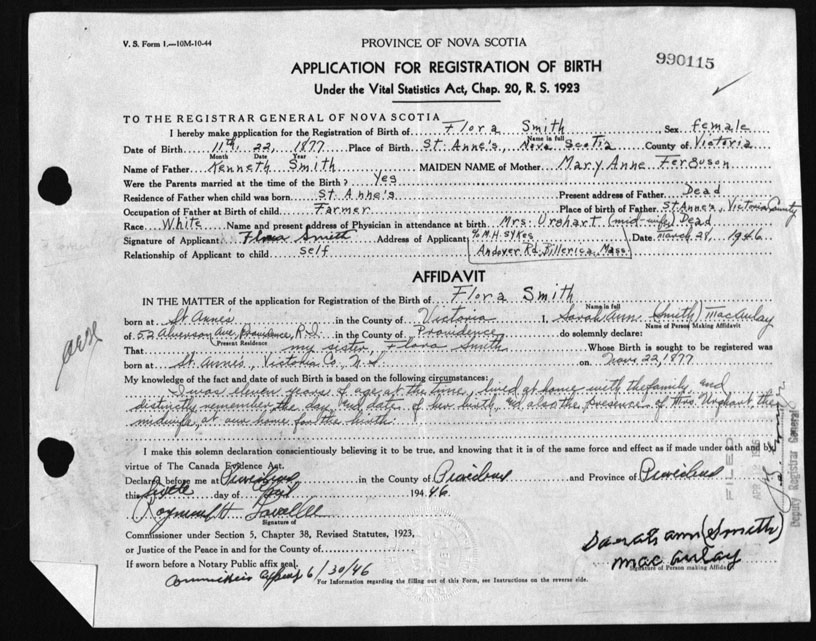 V. S. Form 1.—10M-10-44
PROVINCE OF NOVA SCOTIA
990115
APPLICATION FOR REGISTRATION OF BIRTH
Under the Vital Statistics Act, Chap. 20, R. S. 1923
TO THE REGISTRAR GENERAL OF NOVA SCOTIA
I hereby make application for the Registration of Birth of Flora Smith Sex female
Name in full
Date of Birth 11th, 22, 1877 Place of Birth St. Anne's, Nova Scotia County of Victoria
Month Date Year
Name of Father Kenneth Smith MAIDEN NAME of Mother Mary Anne Ferguson
Were the Parents married at the time of the Birth? Yes
Residence of Father when child was born St Anne's Present address of Father Dead
Occupation of Father at Birth of child Farmer Place of birth of Father St Anne's, Victoria County
Race White Name and present address of Physician in attendance at birth Mrs. Urghart (mid-wife) Dead
Signature of Applicant Flora Smith Address of Applicant % M.H. Sykes Date March 28, 1946
Relationship of Applicant to child self Andover Rd. Billerica, Mass.
AFFIDAVIT
IN THE MATTER of the application for Registration of the Birth of Flora Smith
Name in full
born at St Annes in the County of Victoria I, Sarah Ann (Smith) MacAulay
Name of Person Making Affidavit
of 52 Ave Providence, R.I. in the County of Providence do solemnly declare:
Present Residence
That my sister, Flora Smith Whose Birth is sought to be registered was
born at St. Annes, Victoria Co. N.S. on Nov. 22, 1877
My knowledge of the fact and date of such Birth is based on the following circumstances:
I was eleven years of age at the time, lived at home with the family, and
distinctly remember the day and date of her birth, and also the presence of Mrs. Urghart, the
midwife, at our home for the birth.
I make this solemn declaration conscientiously believing it to be true, and knowing that it is of the same force and effect as if made under oath and by
virtue of The Canada Evidence Act.
Declared before me at Providence in the County of Providence and Province of Providence
this day of 194 46.
Signature of
Commissioner under Section 5, Chapter 38, Revised Statutes, 1923,
or Justice of the Peace in and for the County of
If sworn before a Notary Public affix seal.
6/30/46
Sarah ann (Smith)
mac aulay
Signature of Person making Affidavit
For Information regarding the filling out of this Form, see Instructions on the reverse side.
FILED
Deputy Registrar General